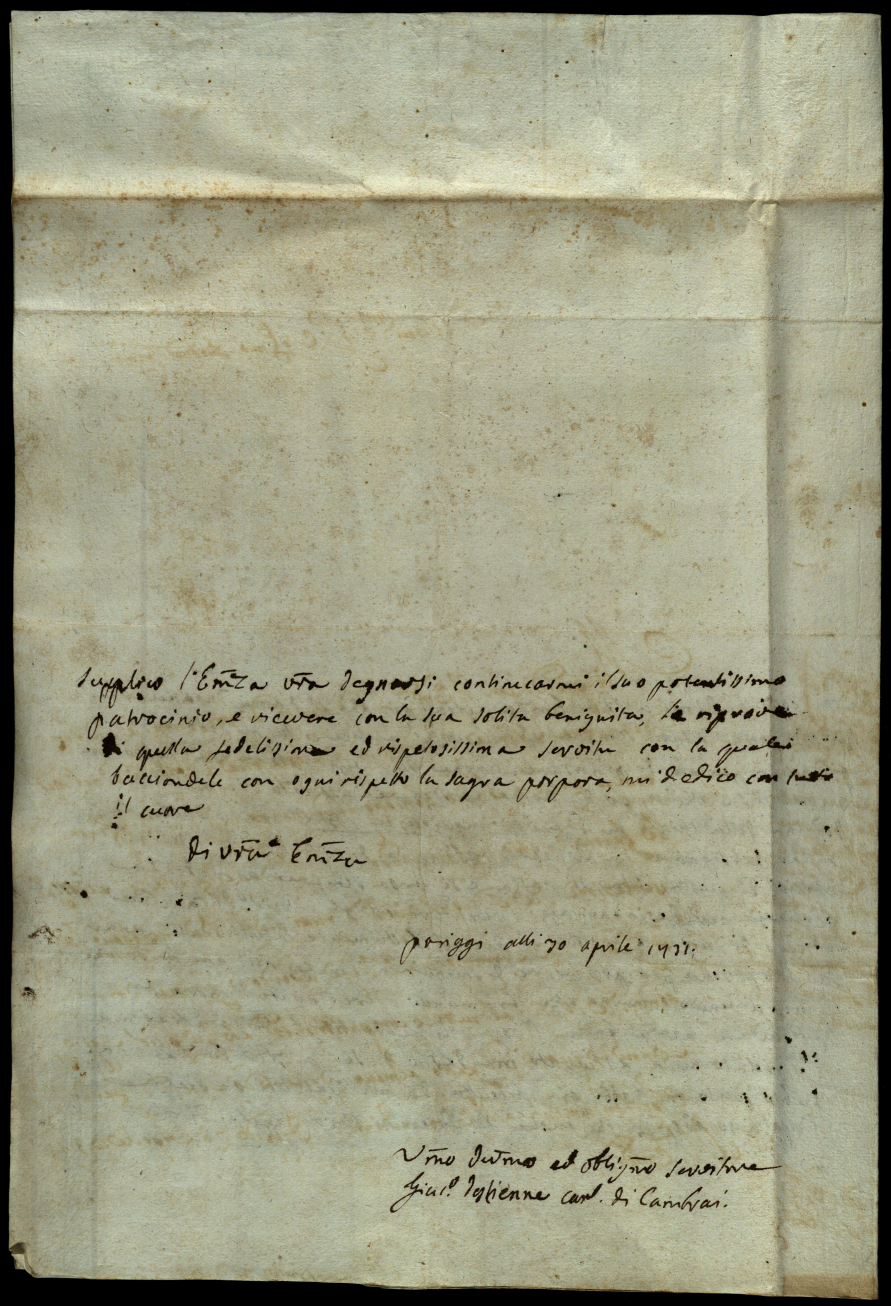 supplico l'Em̃za vr̃a degnarsi continuarmi il suo potentissimo
patrocinio, e ricevere con la sua solita benignita, le riprove
di questa fedelissima ed rispetosissima servitu con la quale
bacciandole con ogni rispetto la sagra porpora, mi dedico con tutto
il cuore
di vr̃a Em̃za
pariggi alli 30 aprile
Um̃o devm̃o ed obligm̃o servitore
d'estienne can. di Cambrai.